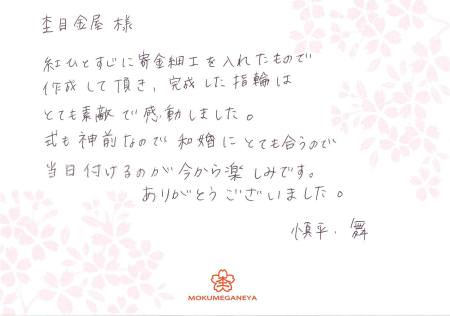 杢目金屋 様
紅ひとすじに寄金細工を入れたもので
作成して頂き、完成した指輪は
とても素敵で感動しました。
式も神前なので和婚にとても合うので
当日付けるのが今から楽しみです。
ありがとうございました。
慎平、舞
杢
MOKUMEGANEYA